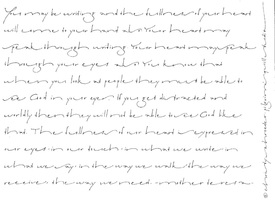 You may be writing and the fullness of your heart
will come to your hand also Your heart may
speak through writing Your heart may speak
through your eyes also You know that
when you look at people they must be able to
see God in your eyes If you get distracted and
worldly then they will not be able to see God like
that The fullness of our heart is expressed in
our eyes in our touch in what we write in
what we say in the way we walk the way we
receive the way we need mother teresa